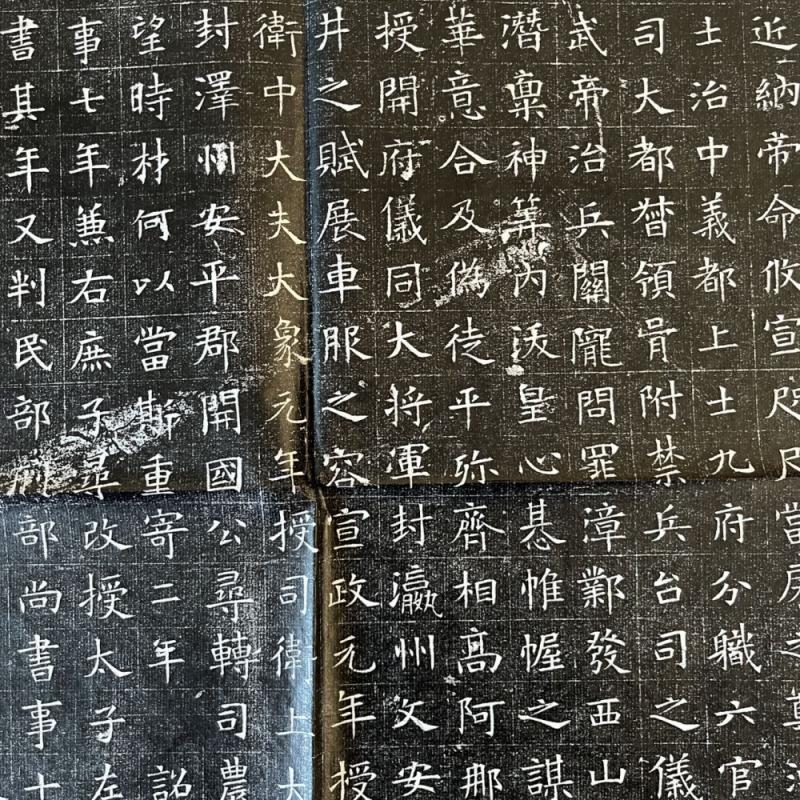 近納帝命攸宣咫尺當扆之尊
士治中義都上士九府分職六官
司大都督領胥附禁兵台司之儀
武帝治兵關隴問罪漳鄴發西山
潛稟神筭內沃皇心惎帷幄之謀
華意合及偽徒平殄齊相高阿那
授開府儀同大将軍封瀛州文安
井之賦展車服之容宣政元年授
衛中大夫大象元年授司衛上大
封澤州安平郡開國公尋轉司農
望時材何以當斯重寄二年詔
事七年兼右庶子尋改授太子左
書其年又判民部刑部尚書事十